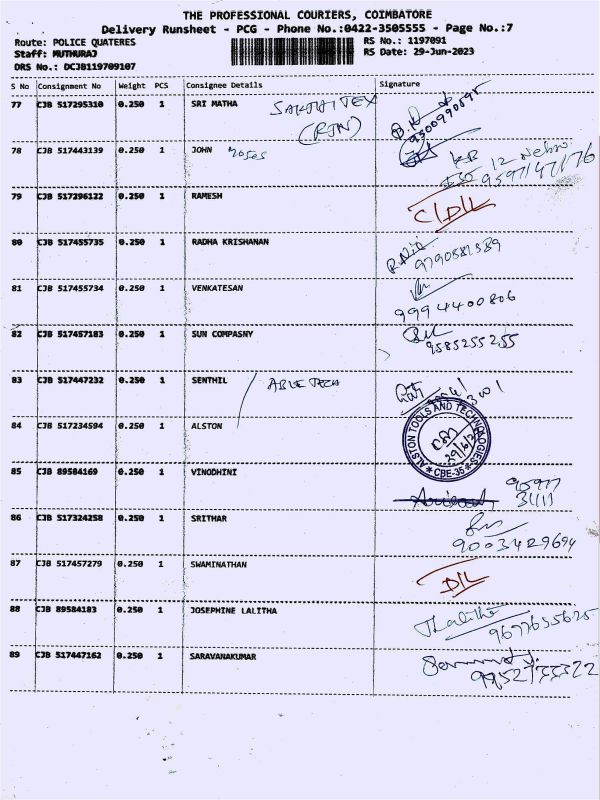 THE PROFESSIONAL COURIERS, COIMBATORE
Delivery Runsheet - PCG - Phone No.:0422-3505555 - Page No.:7
Route: POLICE QUATERES RS No.: 1197091
Staff: MUTHURAJ RS Date: 29-Jun-2023
DRS No.: DCJB119709107
S No Consignment No Weight PCS Consignee Details Signature
77 CJB 517295310 0.250 1 SRI MATHA SAKTHI TEX
(RTN) 9500990595
78 CJB 517443139 JOHN
0.250 1 12 Nehru
9597147176
79 CJB 517296122 0.250 1 RAMESH C/D/L
80 CJB 517455735 0.250 1 RADHA KRISHANAN
9790581589
81 CJB 517455734 0.250 1 VENKATESAN
9994400806
82 CJB 517457183 0.250 1 SUN COMPASNY
9585255255
83 CJB 517447232 0.250 1 SENTHIL ABLE TECH
84 CJB 517234594 0.250 1 ALSTON
ALSTON TOOLS AND TECHNOLOGIES
29/6/23
* CBE-35 *
85 CJB 89584169 0.250 1 VINODHINI 95977
31111
86 CJB 517324258 0.250 1 SRITHAR
9003429694
87 CJB 517457279 0.250 1 SWAMINATHAN D/L
88 CJB 89584183 0.250 1 JOSEPHINE LALITHA Lalitha
9677655625
89 CJB 517447162 0.250 1 SARAVANAKUMAR
9952733322